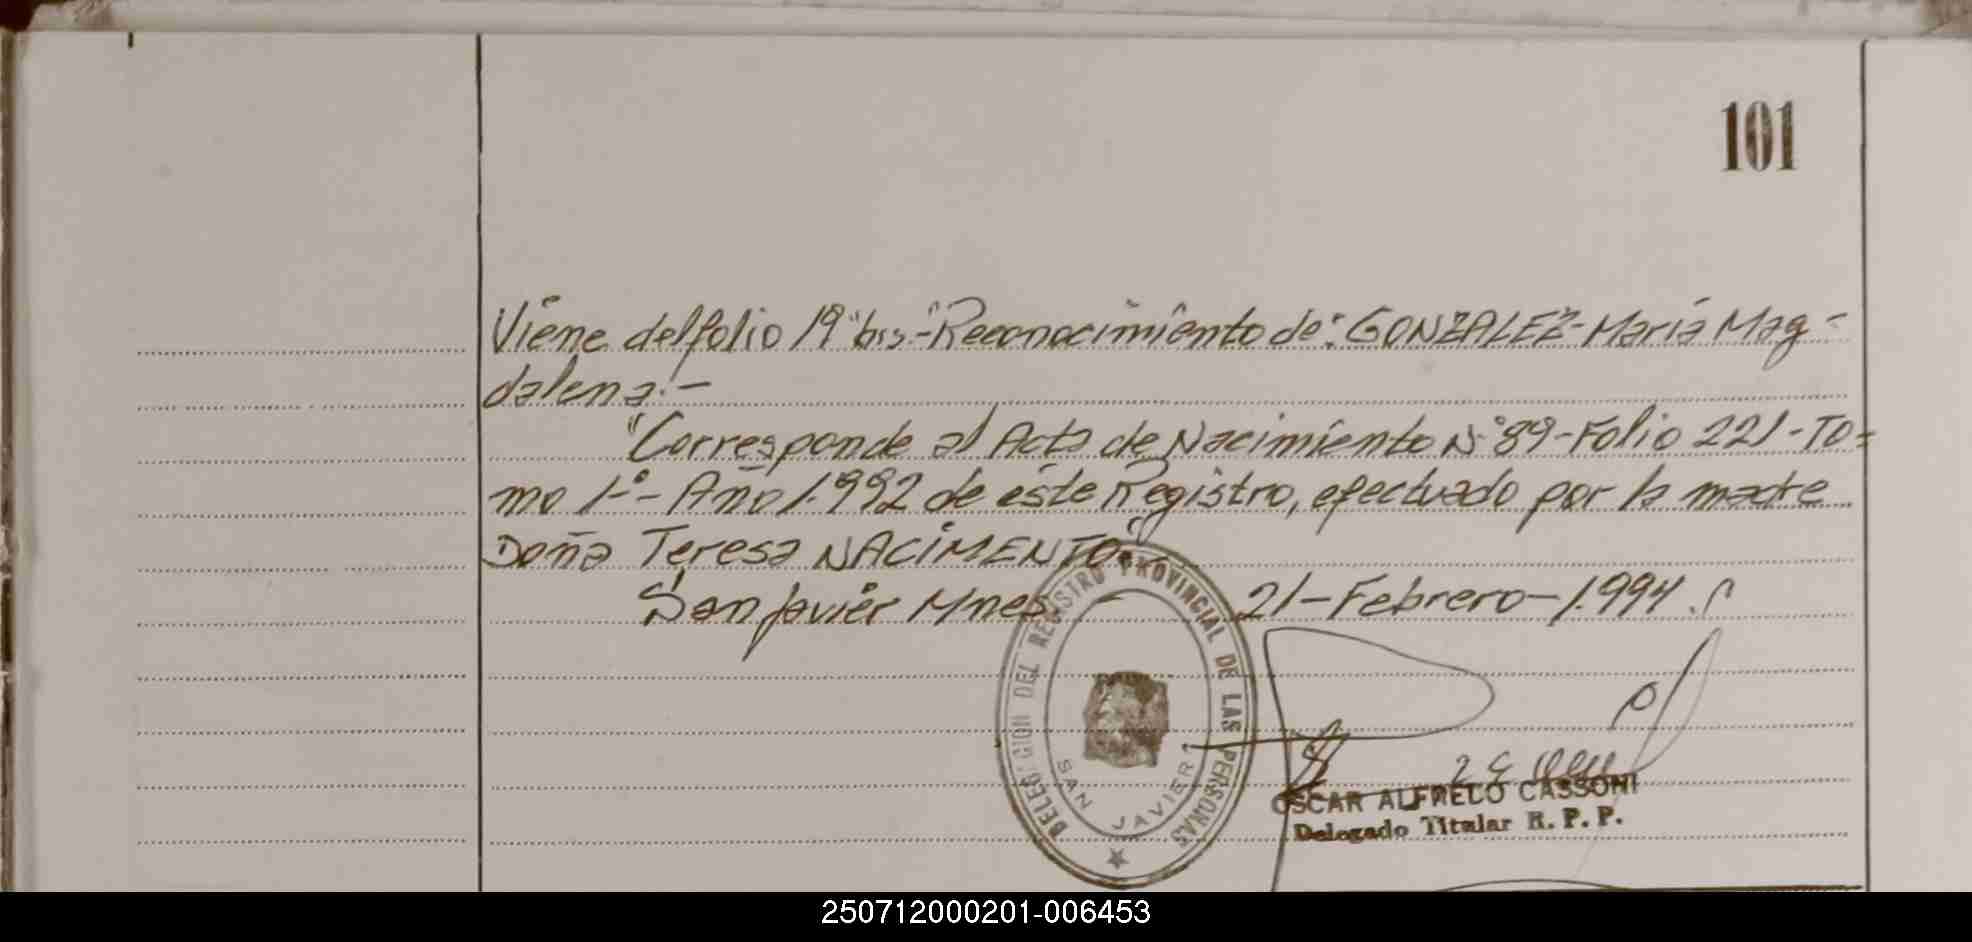 101
Viene del folio 19 "bis"-Reconocimiento de: GONZALEZ-María Mag-
dalena.-
"Corresponde al Acta de Nacimiento N°89-Folio 221-To=
mo 1-°- Año 1.992 de éste Registro, efectuado por la madre
Doña Teresa NACIMENTO"
San Javier Mnes. 21-Febrero-1.994.
DELEGACION DEL REGISTRO PROVINCIAL DE LAS PERSONAS
SAN JAVIER
OSCAR ALFREDO CASSONI
Delegado Titular R. P. P.
250712000201-006453